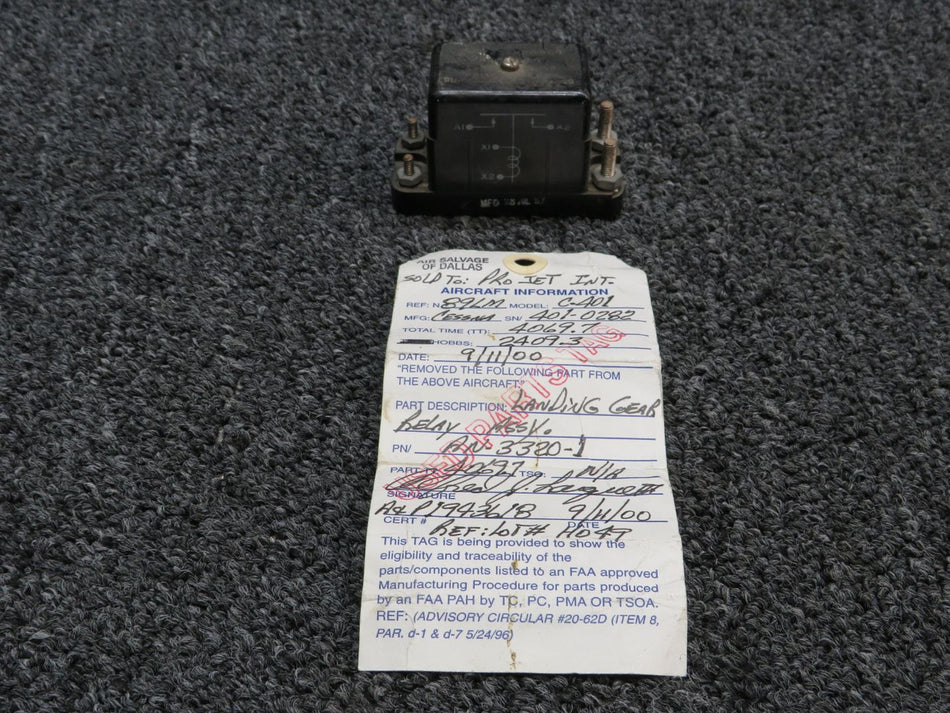 A1 A2
X1
X2
MFD
AIR SALVAGE
OF DALLAS
SOLD TO: PRO JET INT.
AIRCRAFT INFORMATION
REF: N 89LM MODEL: C-401
MFG: CESSNA SN/ 401-0282
TOTAL TIME (TT): 4069.7
HOBBS: 2409.3
DATE: 9/11/00
"REMOVED THE FOLLOWING PART FROM
THE ABOVE AIRCRAFT"
USED PARTS TAG
PART DESCRIPTION: LANDING GEAR
RELAY ASSY.
PN/ PN 3320-1
PART TT 4069.7 TSO: N/A
SIGNATURE
A&P1943618 9/11/00
CERT # DATE
REF: LOT#
This TAG is being provided to show the
eligibility and traceability of the
parts/components listed to an FAA approved
Manufacturing Procedure for parts produced
by an FAA PAH by TC, PC, PMA OR TSOA.
REF: (ADVISORY CIRCULAR #20-62D (ITEM 8,
PAR. d-1 & d-7 5/24/96)